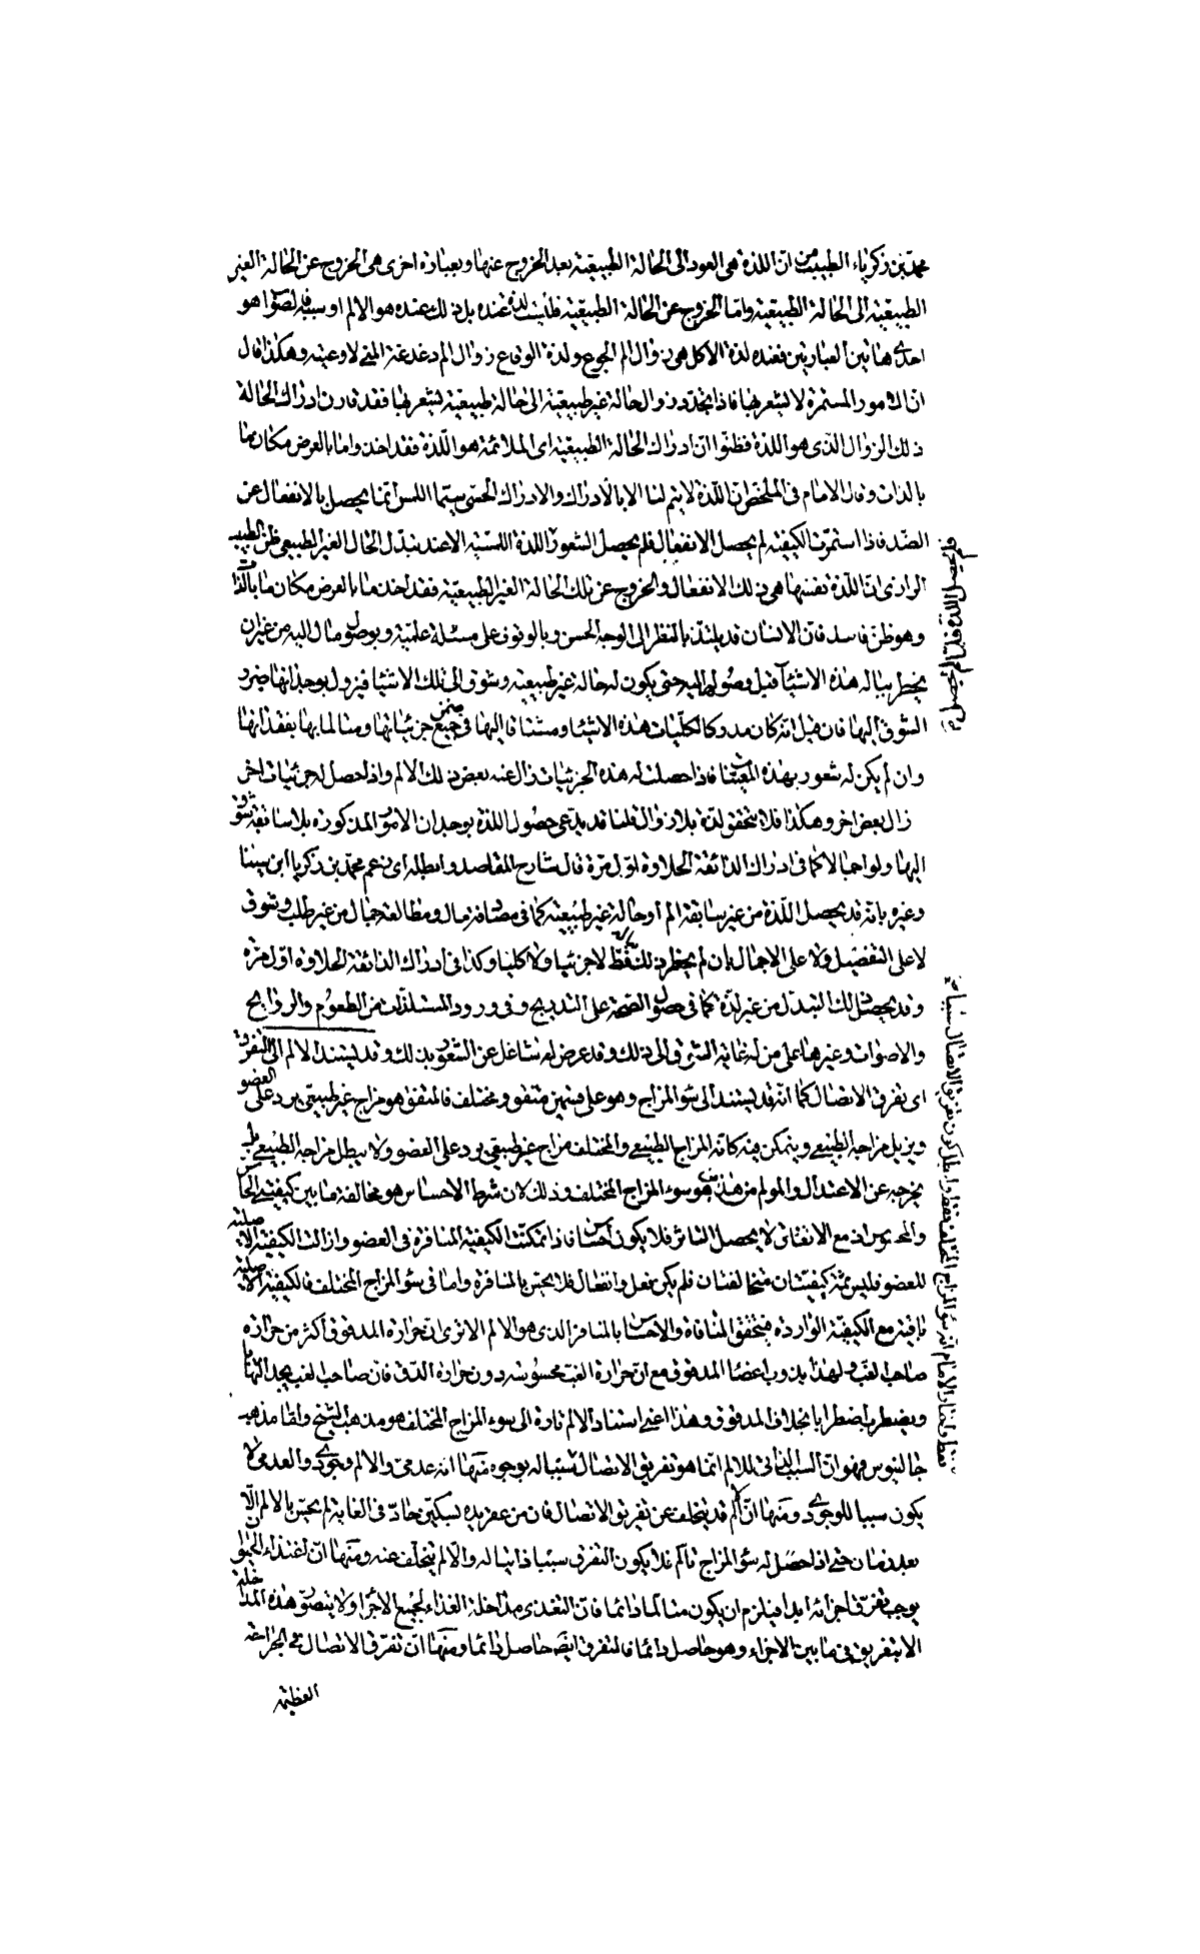 محمد بن زكرياء الطبيب من ان اللذة هى العود الى الحالة الطبيعية بعد الخروج عنها وبعبارة اخرى هى الخروج عن الحالة الغير
الطبيعية الى الحالة الطبيعية واما الخروج عن الحالة الطبيعية فليست لذة عنده بل ذلك عنده هو الالم او سببه هو
احدى هاتين العبارتين فعنده لذة الاكل هى زوال الم الجوع ولذة الوقاع زوال الم دغدغة المنى لاوعيته وهكذا قال
ان الامور المستمرة لا يشعر بها فاذا تجدد زوال حالة غير طبيعية الى حالة طبيعية يشعر بها فقد قارن ادراك الحالة
ذلك الزوال الذى هو اللذة فظنوا ان ادراك الحالة الطبيعية اى الملائمة هو اللذة فقد اخذوا ما بالعرض مكان ما
بالذات وقال الامام فى الملخص ان اللذة لا يتم لنا الا بالادراك والادراك الحسى سيما اللمس انما يحصل بالانفعال عن
الضد فاذا استمرت الكيفية لم يحصل الانفعال فلم يحصل الشعور اللذة اللمسية الا عند تبدل الحال الغير الطبيعى ظن الطبيب
الرازى ان اللذة نفسها هى ذلك الانفعال والخروج عن تلك الحالة الغير الطبيعية فقد اخذ ما بالعرض مكان ما بالذات
وهو ظن فاسد فان الانسان قد يلتذ بالنظر الى الوجه الحسن وبالوقوف على مسئلة علمية وبوصول مال اليه من غير ان
يخطر بباله هذه الاشياء قبل وصولها اليه حتى يكون له حالة غير طبيعية وشوق الى تلك الاشياء فيزول بوجدانها ضرر
الشوق اليها فان قيل انه كان مدركا لكليات هذه الاشياء ومشتاقا اليها فى ضمن جميع جزئياتها ومتالما بها بفقدانها
وان لم يكن له شعور بهذه المعينات فاذا حصلت له هذه الجزئيات زال عنه بعض ذلك الالم واذا حصل له جزئيات اخر
زال بعض اخر وهكذا فلا يتحقق لذة بلا زوال قلنا قد يدعى حصول اللذة بوجدان الامور المذكورة بلا سابقة شوق
اليها ولو اجمالا كما فى ادراك الذائقة الحلاوة اول مرة قال شارح المقاصد وابطله اى زعم محمد بن زكريا ابن سينا
وغيره بانه قد يحصل اللذة من غير سابقة الم او حالة غير طبيعية كما فى مصادفة مال ومطالعة جمال من غير طلب وشوق
لا على التفصيل ولا على الاجمال بان لم يخطر ذلك بباله قط لا جزئيا ولا كليا وكذا فى ادراك الذائقة الحلاوة اول مرة
وقد يحصل ذلك التبدل من غير لذة كما فى حصول الصحة على التدريج وفى ورود المستلذات من الطعوم والروايح
والاصوات وغيرها على من له غاية الشوق الى ذلك وقد عرض له شاغل عن الشعور بذلك وقد يستند الالم الى التفرق
اى تفرق الاتصال كما انه قد يستند الى سوء المزاج وهو على قسمين متفق ومختلف فالمتفق هو مزاج غير طبيعى يرد على العضو
ويزيل مزاجه الطبيعى ويتمكن فيه كانه المزاج الطبيعى والمختلف مزاج غير طبيعى يرد على العضو ولا يبطل مزاجه الطبيعى بل
يخرجه عن الاعتدال والمولم من هذين هو سوء المزاج المختلف وذلك لان شرط الاحساس هو مخالفة ما بين كيفيتى الحاس
والمحسوس اذ مع الاتفاق لا يحصل التاثر فلا يكون احساس فاذا تمكنت الكيفية المنافرة فى العضو وازالت الكيفية الاصلية
للعضو فليس ثمة كيفيتان متخالفتان فلم يكن فعل وانفعال فلا يحس بالمنافرة واما فى سوء المزاج المختلف فالكيفية الاصلية
باقية مع الكيفية الواردة فيتحقق المنافاة والاحساس بالمنافر الذى هو الالم الا ترى ان حرارة المدقوق اكثر من حرارة
صاحب الغب ولهذا يذوب اعضاء المدقوق مع ان حرارة الغب محسوسة دون حرارة الدق فان صاحب الغب يجد التهابا
ويضطرب اضطرابا بخلاف المدقوق وهذا اعنى استناد الالم تارة الى سوء المزاج المختلف هو مذهب الشيخ واما مذهب
جالينوس فهو ان السبب الذاتى للالم انما هو تفريق الاتصال بوجوه منها انه عدمى والالم وجودى والعدمى لا
يكون سببا للوجودى ومنها ان الالم قد يتخلف عن تفريق الاتصال فان من عقر يده بسكين حاد فى الغاية لم يحس بالالم الا
بعد زمان حتى اذا حصل له سوء المزاج تالم فلا يكون التفرق سببا ذاتيا له والا لم يتخلف عنه ومنها ان اغتذاء الحيوان
يوجب تفرق اجزائه ابدا فيلزم ان يكون متالما دائما فان التغذى مداخلة الغذاء لجميع الاجزاء ولا يتصور هذه المداخلة
الا بتفريق فى ما بين الاجزاء وهو حاصل دائما فالتفرق ايضا حاصل دائما ومنها ان تفرق الاتصال فى الجراحة
العظيمة